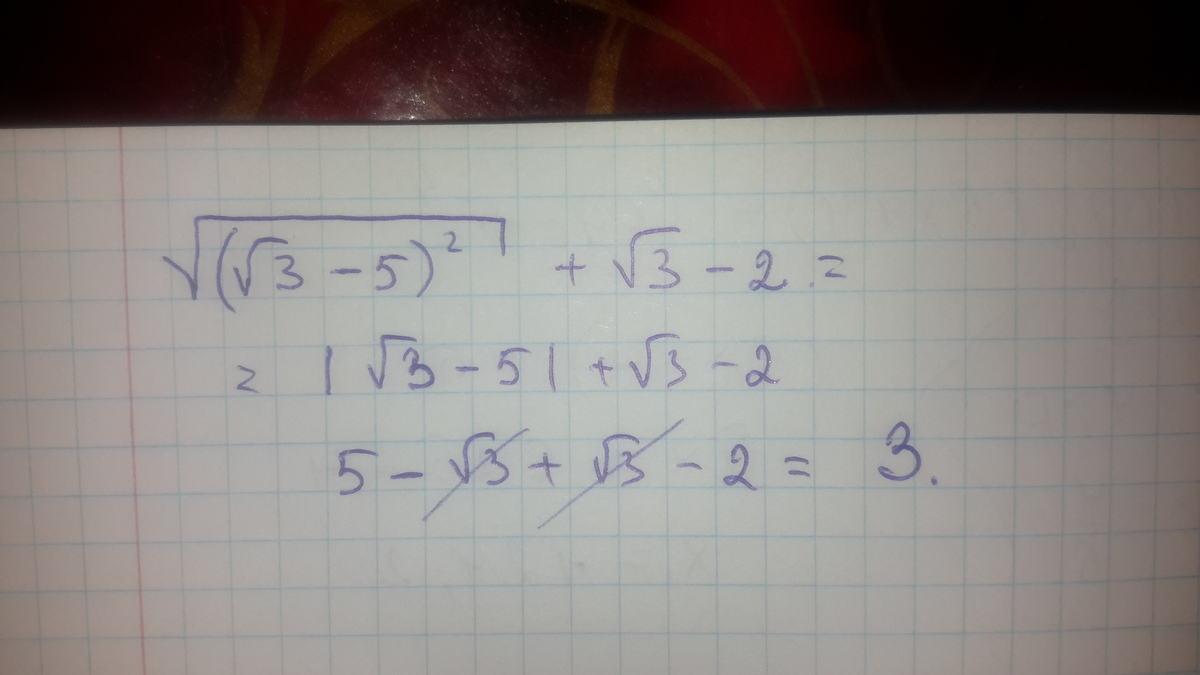 √(√3 − 5)² + √3 − 2 =
= |√3 − 5| + √3 − 2
5 − √3 + √3 − 2 = 3.